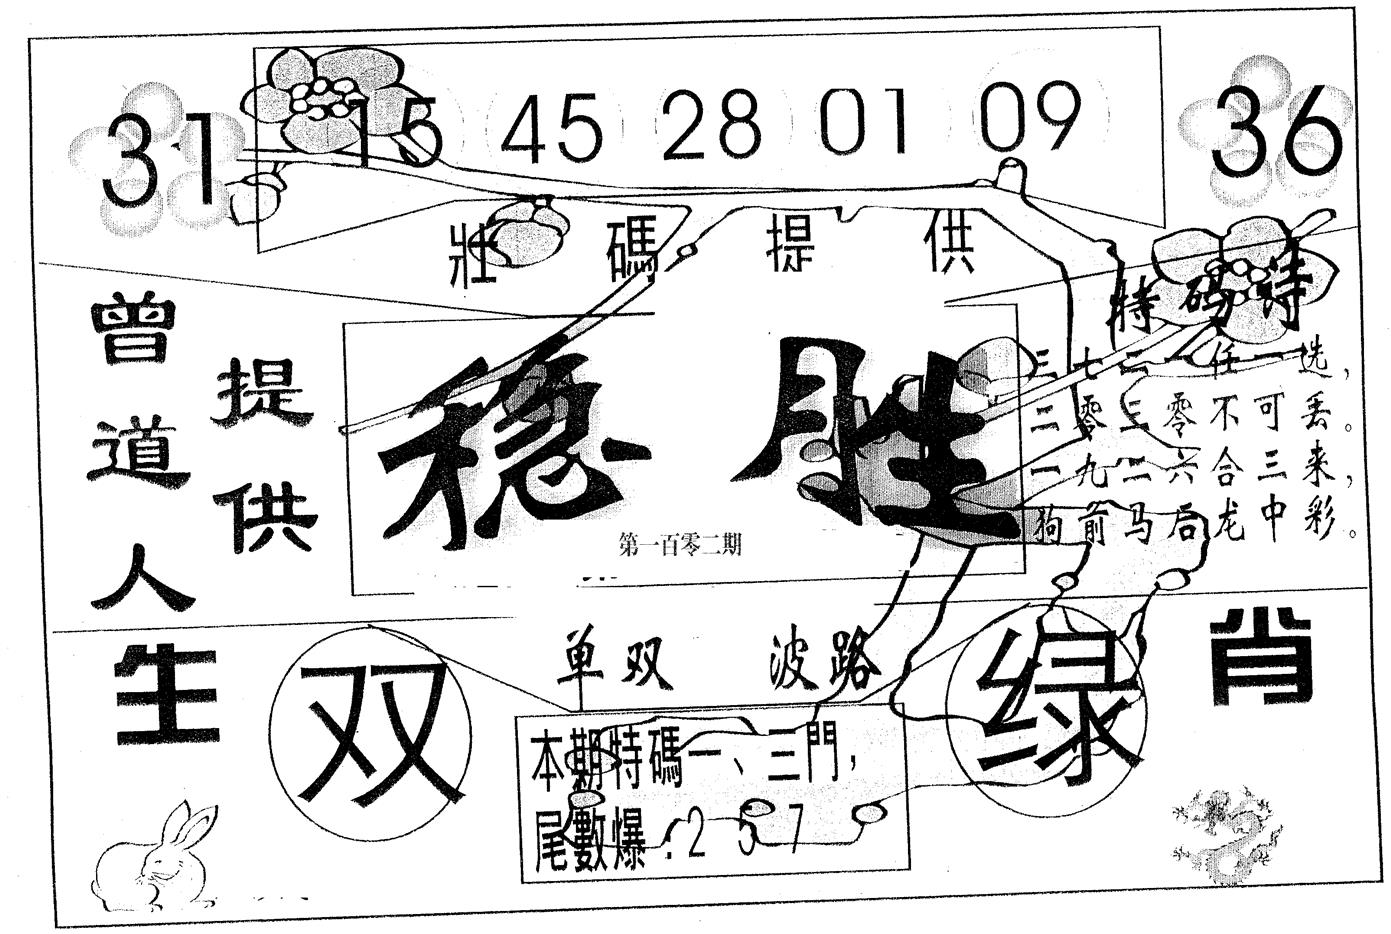 31 15 45 28 01 09 36
壯碼提供
曾道人
提供
稳胜
第一百零二期
特码诗
三七二一任一选，
二零三零不可丢。
一九二六合三来，
狗前马后龙中彩。
生肖
单双 波路
双
绿
本期特碼一、三門，
尾數爆：2 5 7